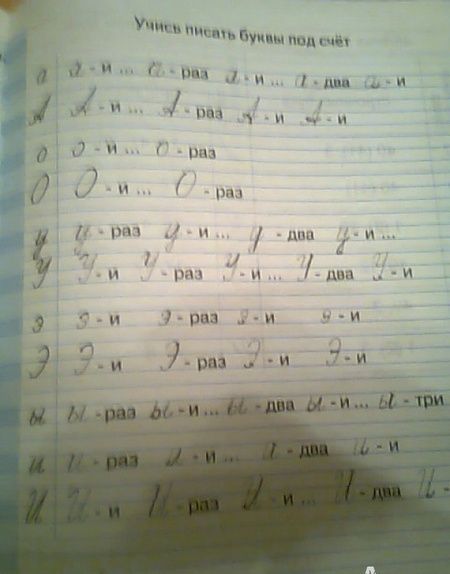 Учись писать буквы под счёт
а а - и ... а - раз а - и ... а - два а - и
А А - и ... А - раз А - и А - и
о о - и ... о - раз
О О - и ... О - раз
у у - раз у - и ... у - два у - и ...
У У - и У - раз У - и ... У - два У - и
э э - и э - раз э - и э - и
Э Э - и Э - раз Э - и Э - и
ы ы - раз ы - и ... ы - два ы - и ... ы - три
и и - раз и - и ... и - два и - и
И И - и И - раз И - и ... И - два И -